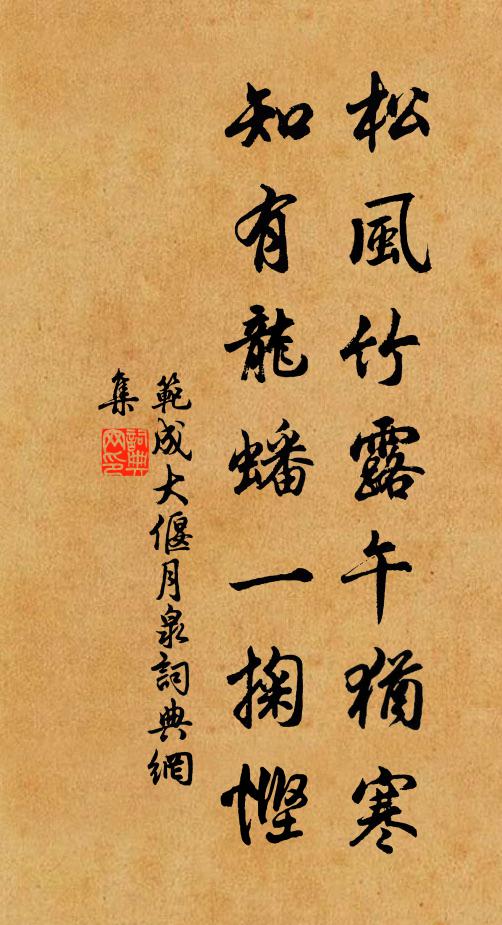 松風竹露午猶寒
知有龍蟠一掬慳
範成大偃月泉詞典網
集
詞典网印